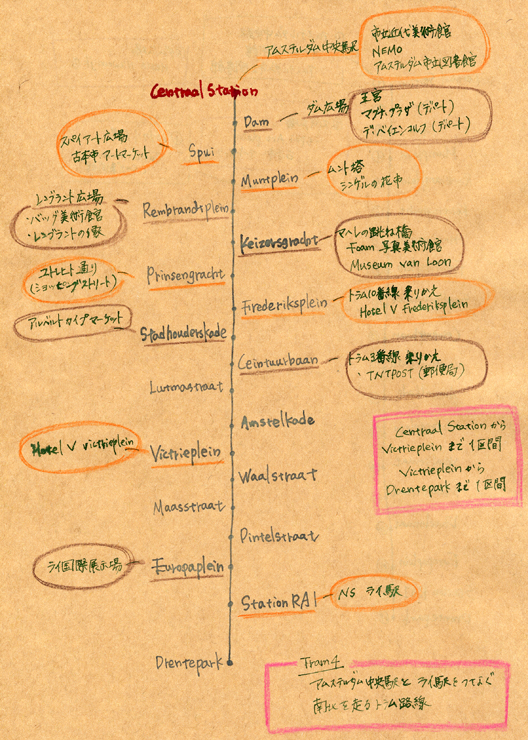 アムステルダム中央駅
市立近代美術館
NEMO
アムステルダム市立図書館
Centraal Station
Dam
ダム広場
王宮
マグナ・プラザ (デパート)
デ・バイエンコルフ (デパート)
スパイアート広場
古本市 アートマーケット
Spui
Muntplein
ムント塔
シンゲルの花市
レンブラント広場
・バッグ美術館
・レンブラントの像
Rembrandtsplein
Keizersgracht
マヘレの跳ね橋
Foam 写真美術館
Museum van Loon
ユトレヒト通り
(ショッピングストリート)
Prinsengracht
Frederiksplein
トラム10番線 乗りかえ
Hotel V Frederiksplein
アルベルト カイプ マーケット
Stadhouderskade
Ceintuurbaan
トラム3番線 乗りかえ
・TNTPOST (郵便局)
Lutmastraat
Amstelkade
Hotel V victrieplein
Victrieplein
Waalstraat
Centraal Stationから
Victriepleinまで1区間
Victriepleinから
Drenteparkまで1区間
Maasstraat
Dintelstraat
ライ国際展示場
Europaplein
Station RAI
NS ライ駅
Drentepark
Tram4
アムステルダム中央駅と ライ駅をつなぐ
南北を走るトラム路線